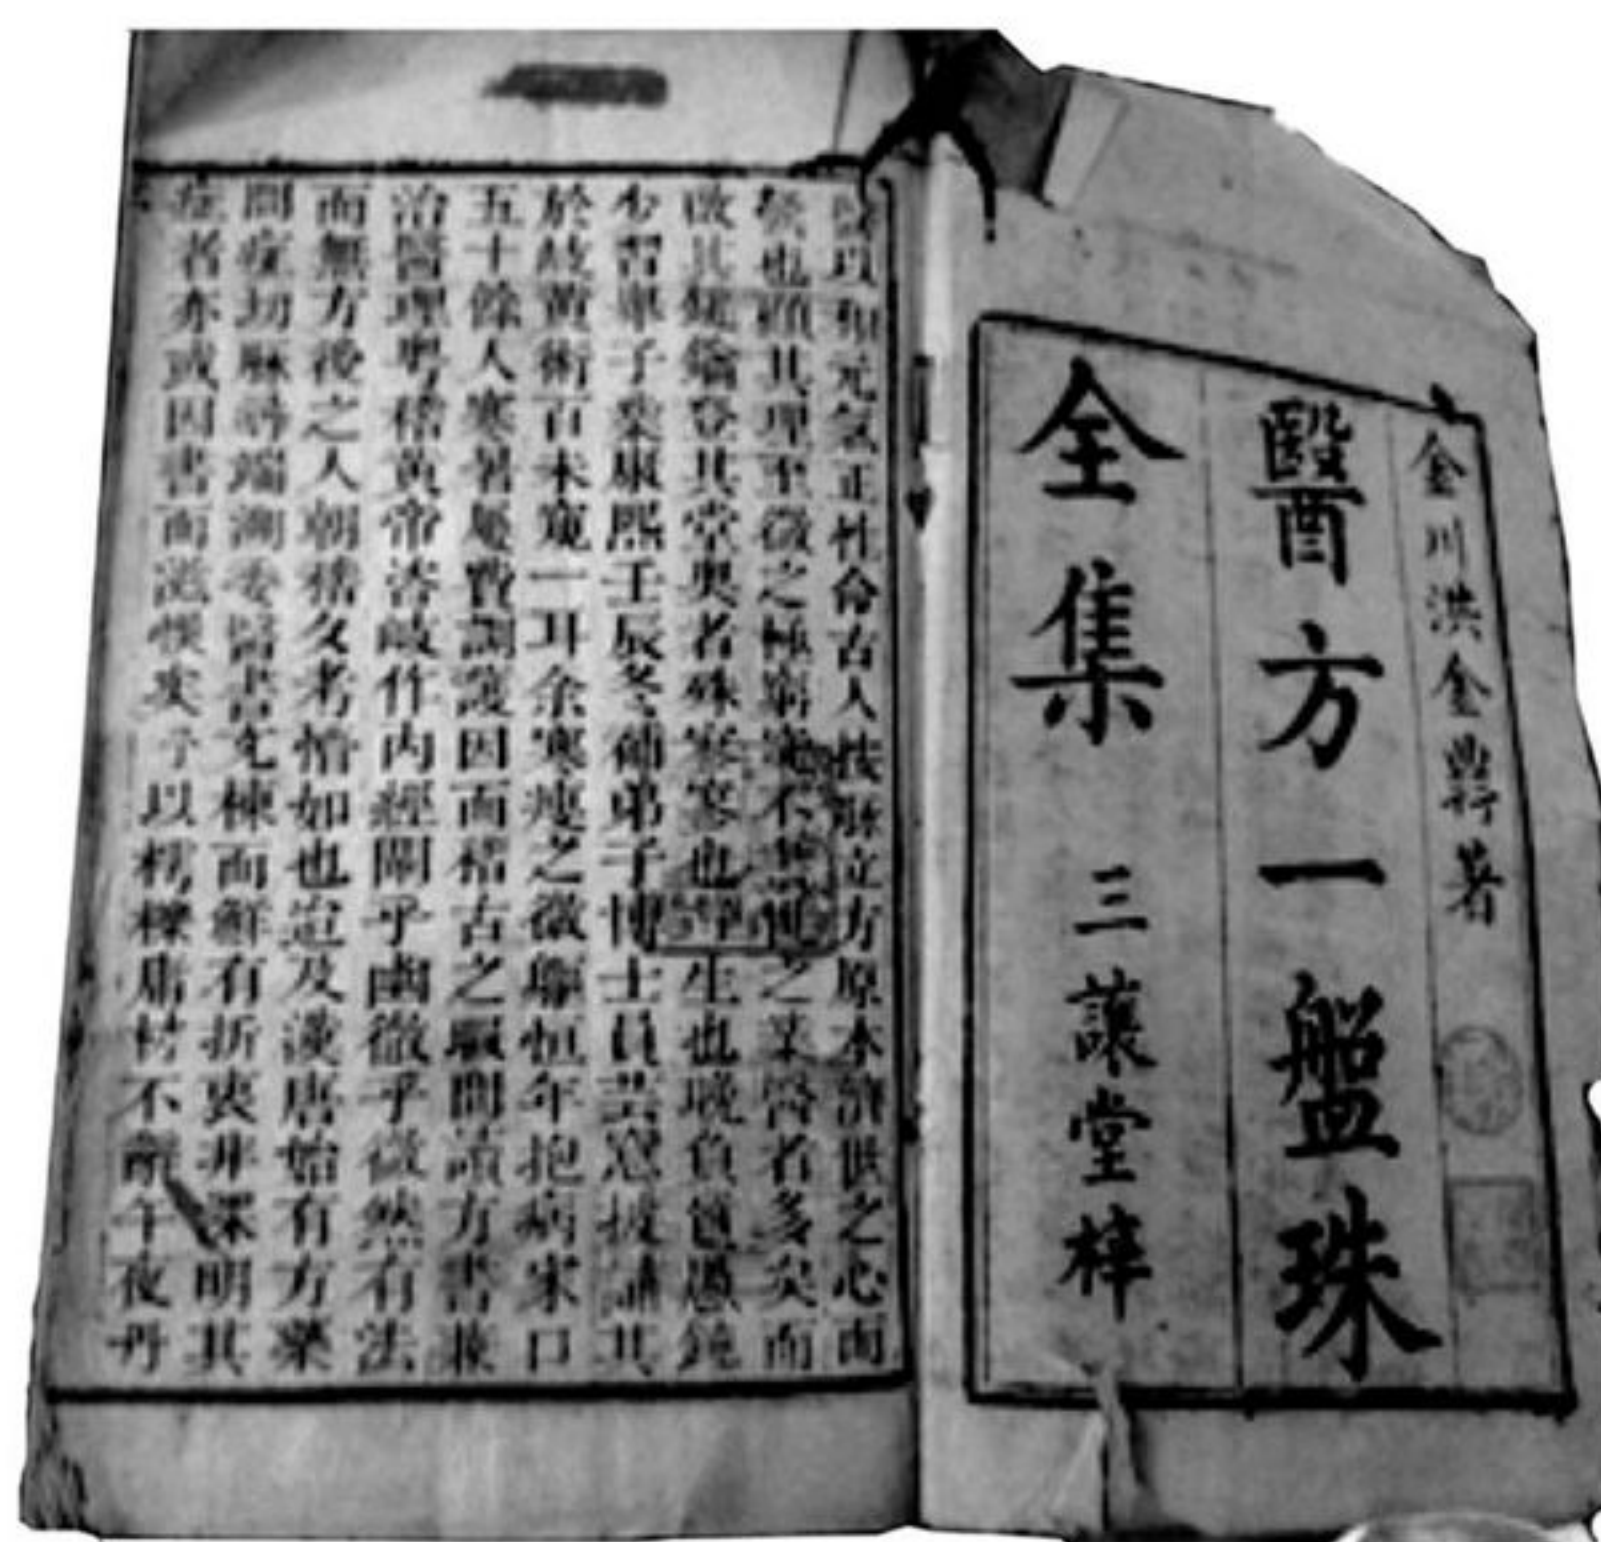 金川洪金鼎著
醫方一盤珠
全集 三讓堂梓
以和元氣正性命古人技立方原本濟世之心而
也顧其理至微之極窮不之業醫者多矣而
啟其登其堂奧者殊寥寥也生也晚負愚鈍
少習舉子業康熙壬辰冬補弟子博士員芸窓披誦其
於歧黃術百未窺一耳余寒瘦之微罹恒年抱病宋口
五十餘人寒暑屢費調護因而稽古之願問讀方書兼
治醫理粵稽黃帝咨岐作內經闡乎幽微乎微然有法
而無方後之人朝猜夕考惜如也迨及漢唐始有方藥
問症切脉尋端溯委醫書充棟而鮮有折衷非深明其
症者亦或因書而滋悞矣予以樗櫟庸材不辭午夜丹